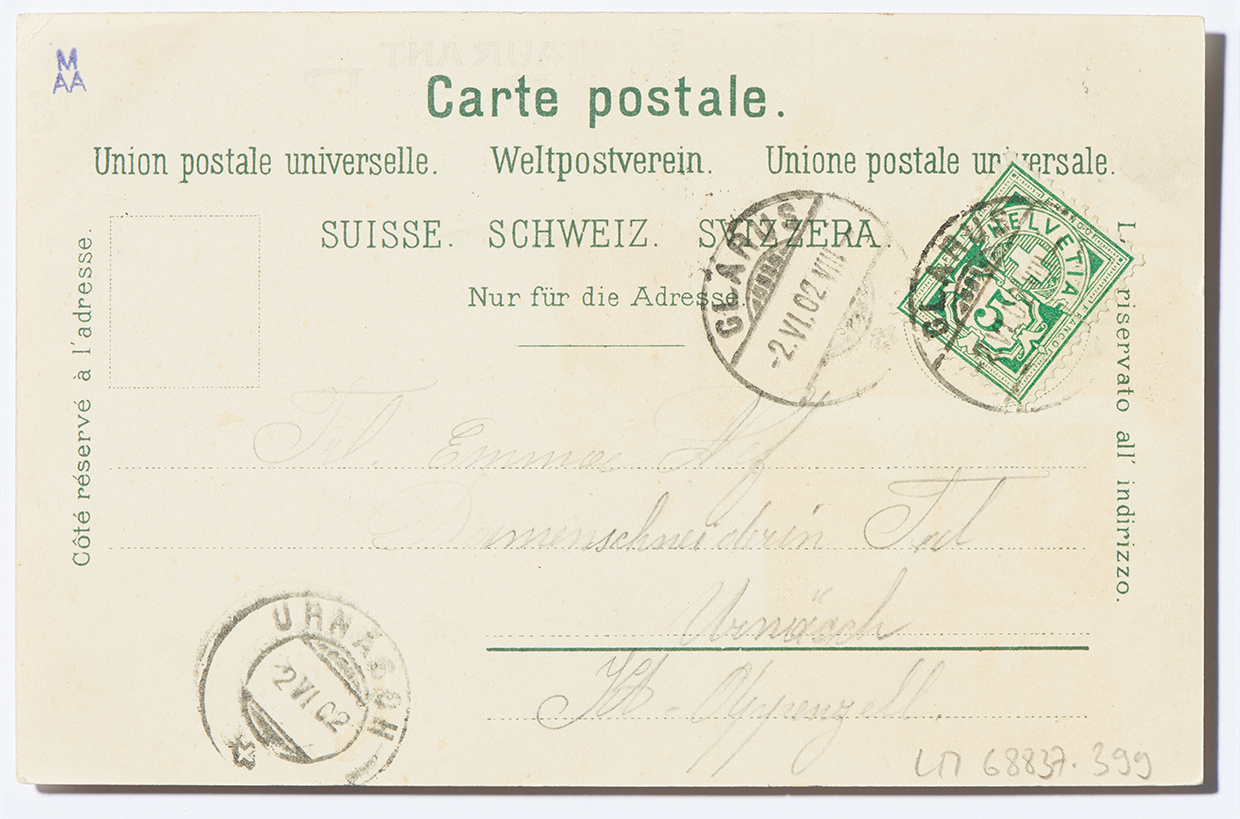 M
AA
Carte postale.
Union postale universelle. Weltpostverein. Unione postale universale.
SUISSE. SCHWEIZ. SVIZZERA.
Nur für die Adresse.
Côté réservé à l'adresse.
riservato all' indirizzo.
GLARUS
-2.VI.02.VIII
GLARUS
HELVETIA
FRANCO
5
Frl. Emma
Damenschneiderin
Urnäsch
Kt. Appenzell.
URNÄSCH
2 VI 02
LM 68837.399